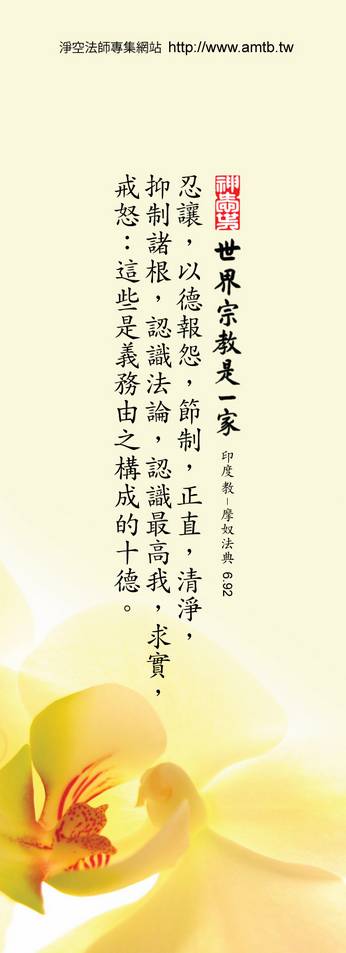 淨空法師專集網站 http://www.amtb.tw
神愛世
世界宗教是一家 印度教－摩奴法典 6.92
忍讓，以德報怨，節制，正直，清淨，
抑制諸根，認識法論，認識最高我，求實，
戒怒：這些是義務由之構成的十德。